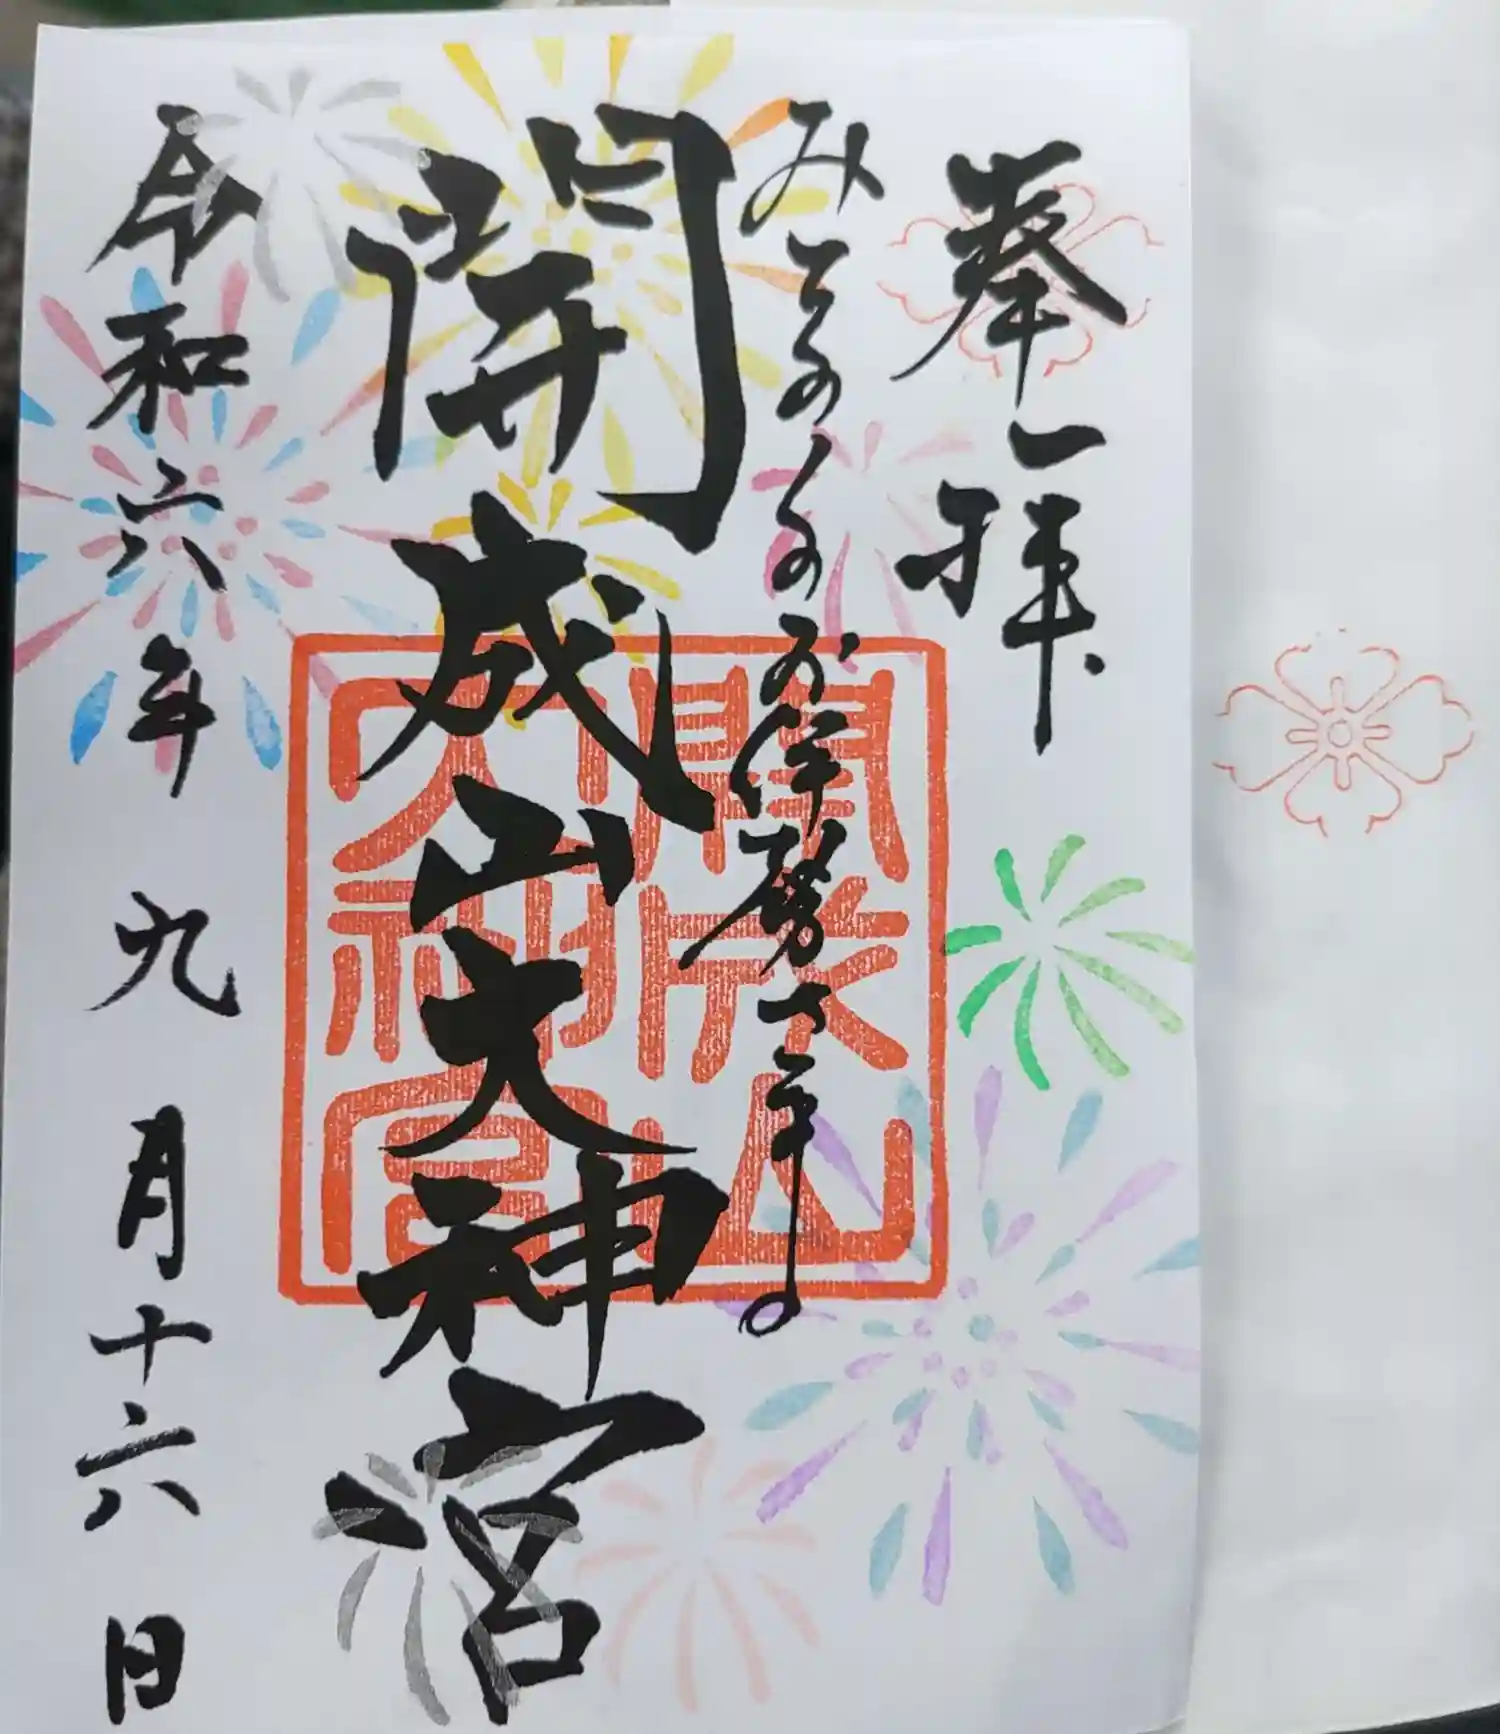 奉拝
みちのくのお伊勢さま
開成山大神宮
開成山
大神宮
令和六年九月十六日